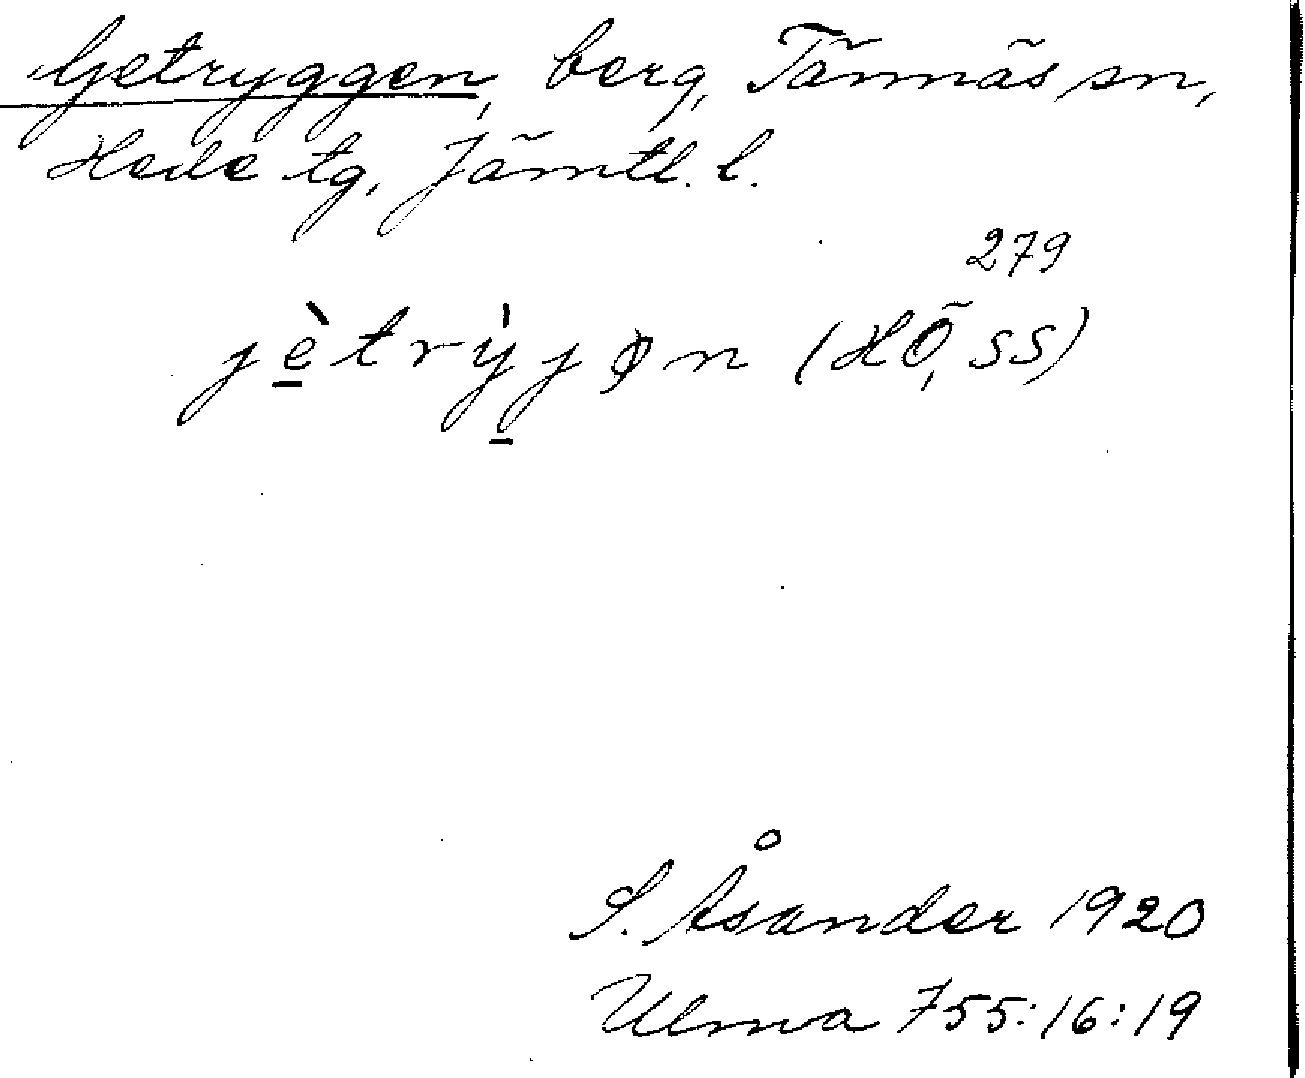 Getryggen, berg, Tännäs sn,
Hede tg, Jämtl. l.
279
(HÖ, SS)
S. Åsander 1920
Ulma 755:16:19